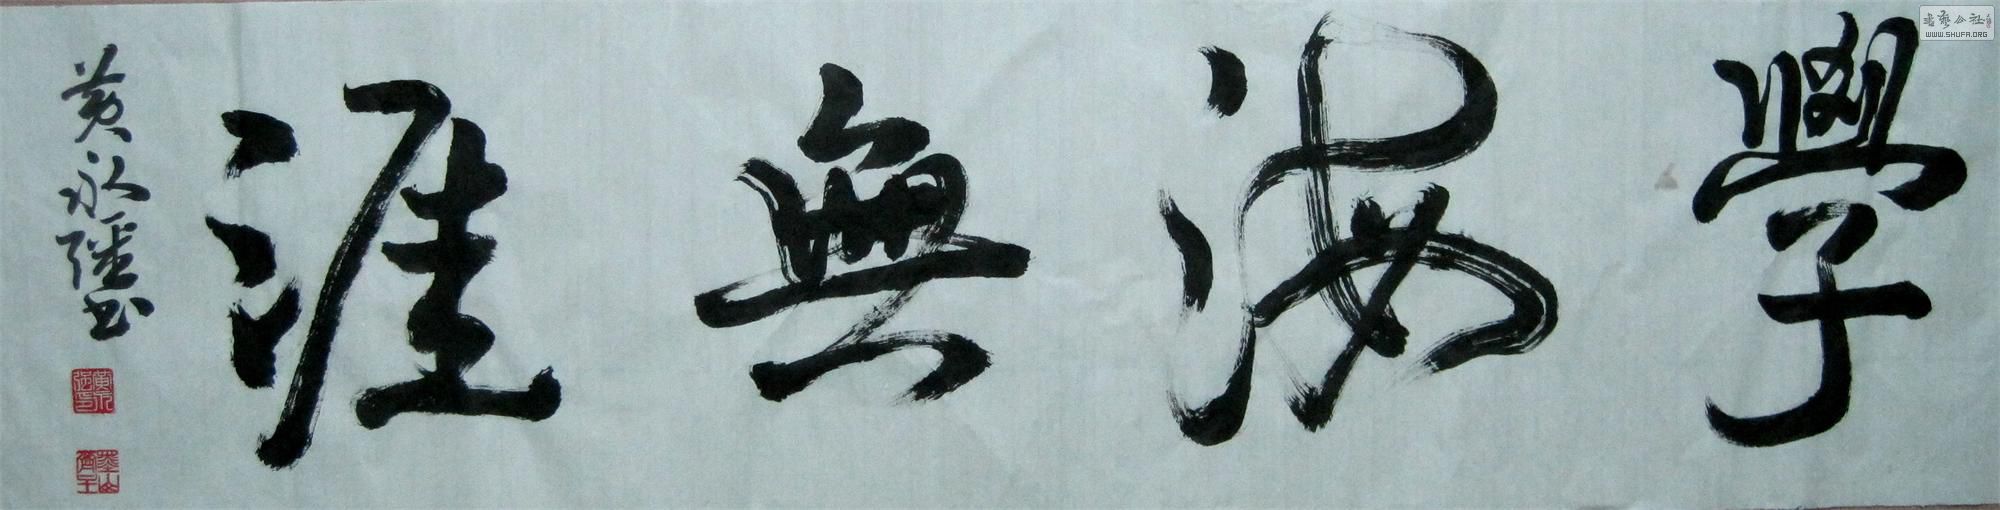 學海無涯
黄永强书
書藝公社
WWW.SHUFA.ORG